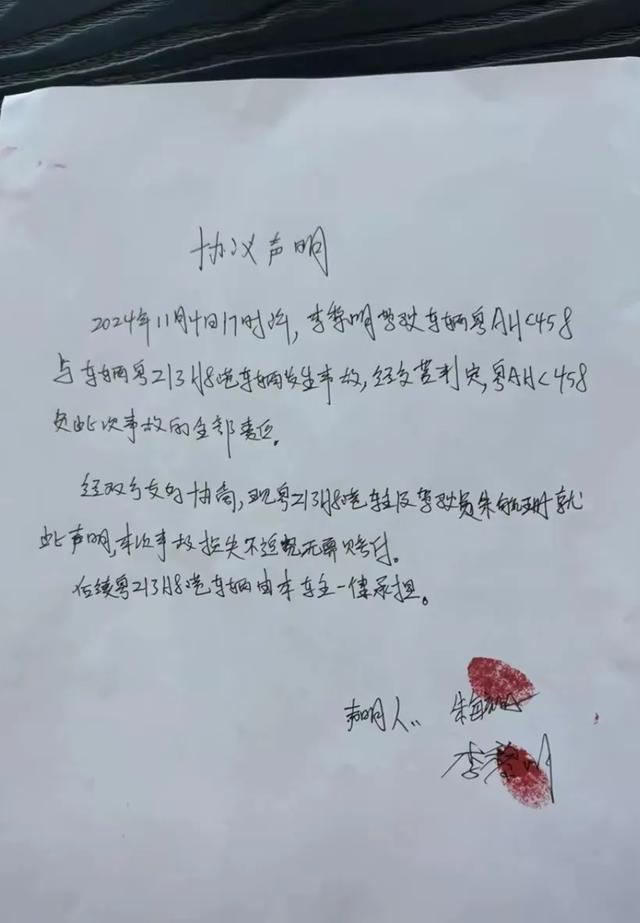 协议声明
2024年11月4日17时许,李黎明驾驶车辆粤AH<458
与车辆粤Z13H8港车辆发生事故,经交警判定,粤AH<458
负此次事故的全部责任。
经双方友好协商,现粤Z13H8港车主及驾驶员朱 就
此声明,本次事故损失不追究无需赔付。
后续粤Z13H8港车辆由本车主一律承担。
声明人: 朱
李黎明